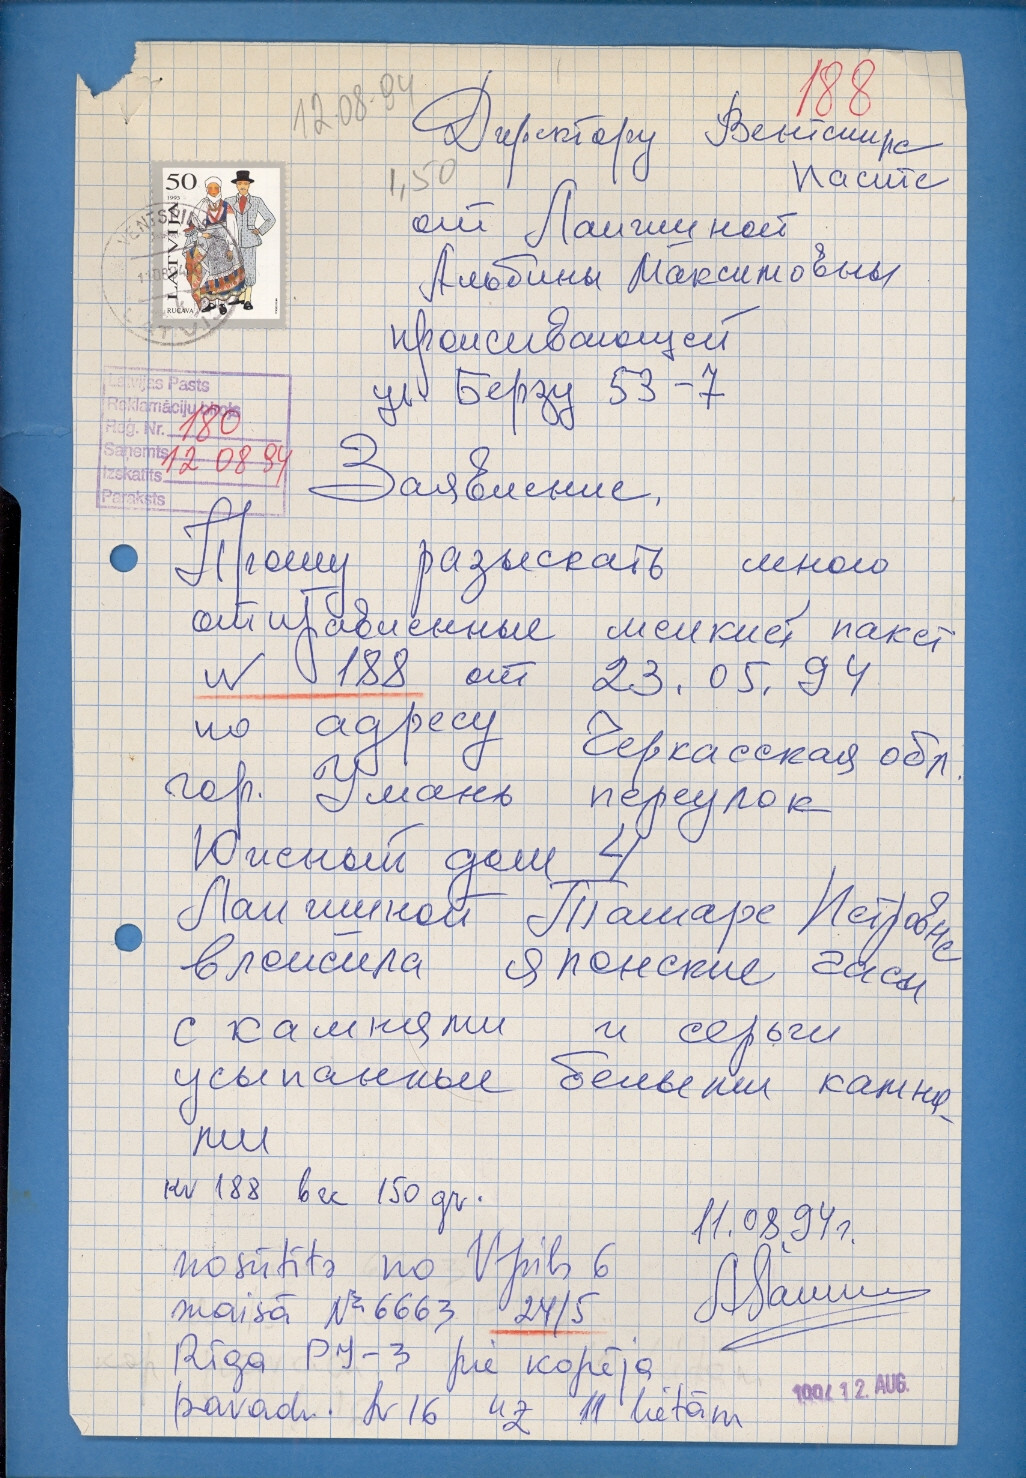 188
12.08.94
Директору Вентспилс
Паситс
1,50
от Лапшиной
Альбины Максимовны
проживающей
ул. Берзу 53-7
50
1993
LATVIJA
RUCAVA
VENTSPILS
LATVIJA
Latvijas Pasts
Reklamāciju birojs
Reg. Nr. 180
Saņemts 12 08 94
Izskatīts
Paraksts
Заявление.
Прошу разыскать мною
отправленные мелкий пакет
N 188 от 23.05.94
по адресу Черкасская обл.
гор. Умань переулок
Южный дом 4
Лапшиной Тамаре Петровне
вложила японские часы
с камнями и серьги
усыпанные белыми камня-
ми
nr 188 150 gr.
11.08.94г.
nosūtīts no Vpils 6
maisā № 6663 24/5
Rīga PJ-3 pie kopēja
pavadr. Nr 16 uz 11 lietām
1994 12. AUG.